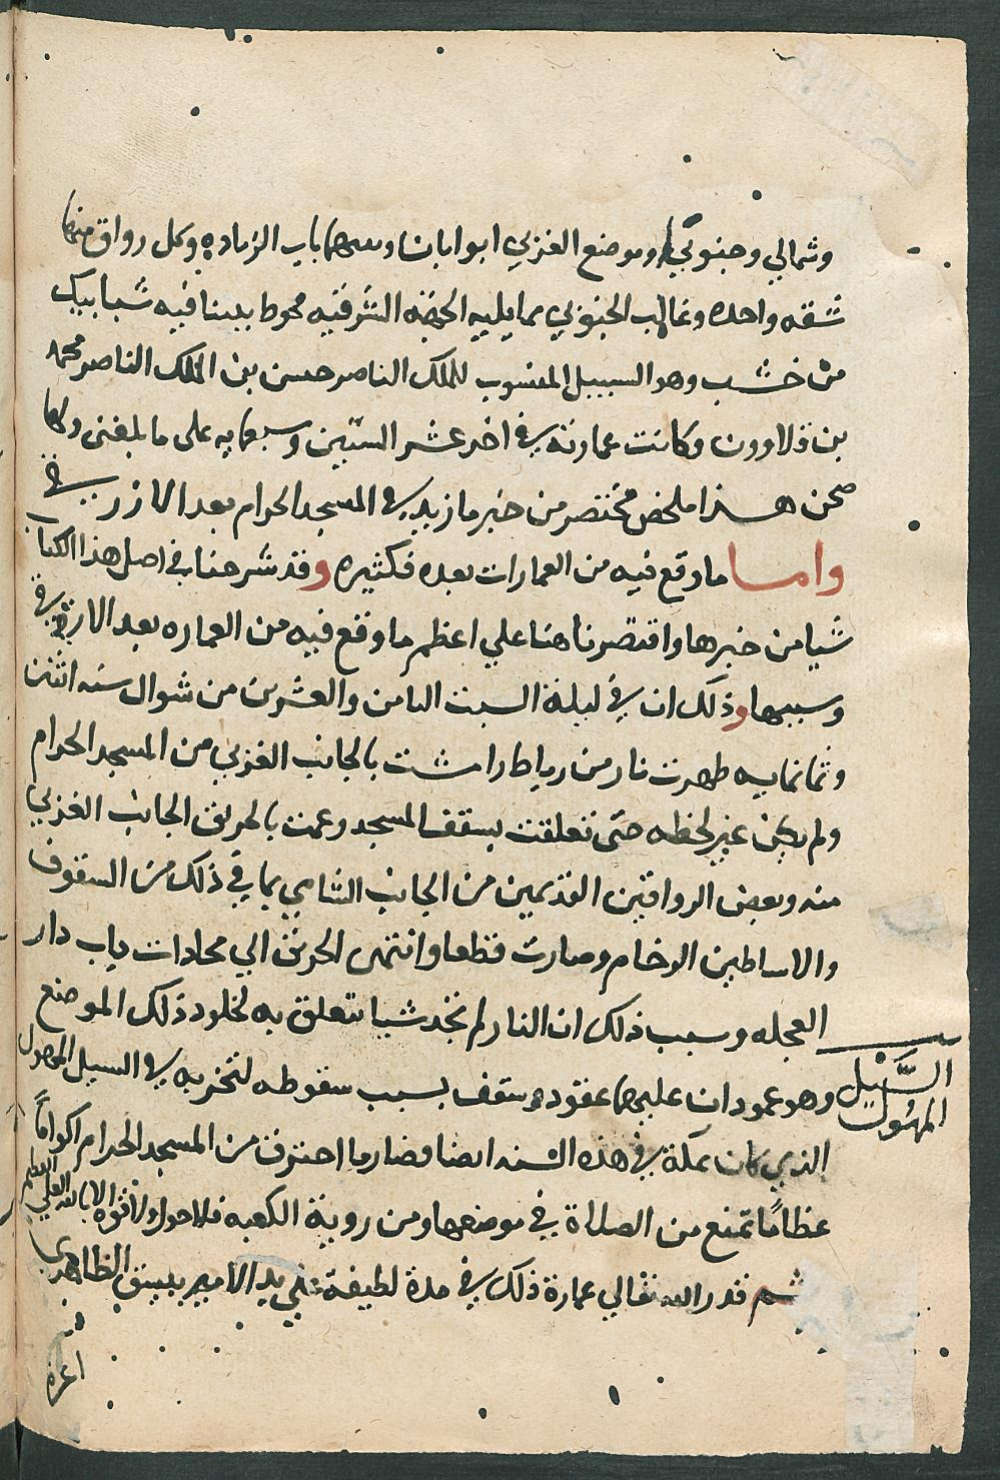 وشمالي وجنوبي وموضع الغربي ابوابان وسهما باب الزياده وكل رواق منها
شقه واحده وغالب الجنوبي مما يليه الجهه الشرقيه محوط ببنا فيه شبابيك
من خشب وهو السبيل المنسوب للملك الناصر حسن بن الملك الناصر محمد
بن قلاوون وكانت عمارته في اخر عشر الستين وسبعمايه على ما بلغني ولها
صحن هذا ملخص مختصر من خبر ما زيد في المسجد الحرام بعد الازرقي
واما ما وقع فيه من العمارات بعده فكثيره وقد شرحنا في اصل هذا الكتاب
شيا من خبرها واقتصرنا هنا علي اعظم ما وقع فيه من العماره بعد الازرقي
وسببها وذلك ان في ليلة السبت الثامن والعشرين من شوال سنه اثنين
وثمانمايه ظهرت نار من رباط رامشت بالجانب الغربي من المسجد الحرام
ولم يكن غير لحظه حتى تعلقت بسقف المسجد وعمت بالحريق الجانب الغربي
منه وبعض الرواقين القدمين من الجانب الشامي بما في ذلك من السقوف
والاساطين الرخام وصارت قطعا وانتهى الحريق الي محادات باب دار
العجله وسبب ذلك ان النار لم تجد شيا تتعلق به لخلو ذلك الموضع
وهو عمودان عليهما عقود وسقف بسبب سقوطه لتخربه في السيل المهول
الذي كان بمكة في هذه السنه ايضا فصار ما احترق من المسجد الحرام اكواماً
عظاماً تمنع من الصلاة في موضعها ومن روية الكعبه فلا حول ولا قوة الا بالله العلي العظيم
ثم قدر الله تعالي عمارة ذلك في مدة لطيفة علي يد الامير بيسق الظاهري
السَّيل
المهول